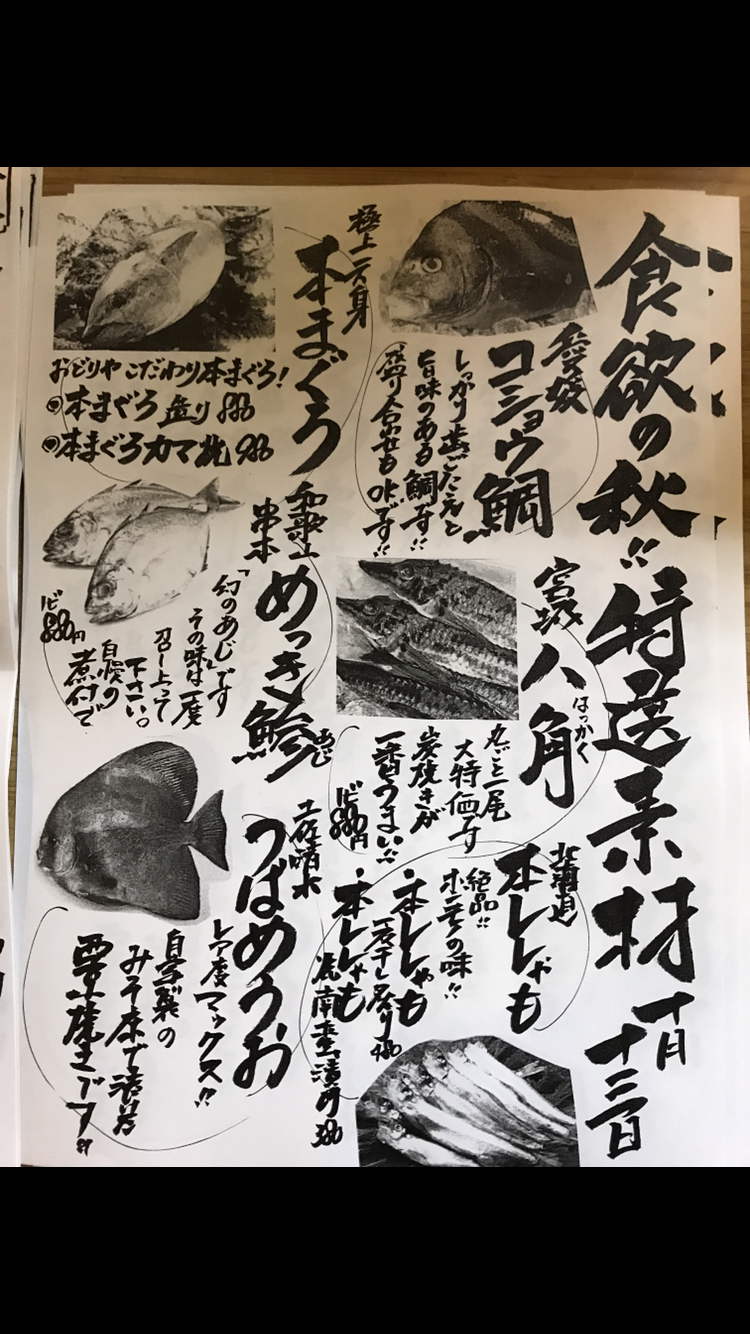 食欲の秋!! 特選素材 十月
十三日
愛媛
コショウ鯛
しっかり歯ごたえと
旨味のある鯛です!!
盛り合せも
極上一六身
本まぐろ
おどりや こだわり本まぐろ!
◎本まぐろ 造り 880
◎本まぐろカマ焼 980
宮城
八角
はっかく
丸ごと一尾
大特価です
炭焼きが
一番うまい!!
880円
和歌山
串本
めっき鯵
あじ
「幻のあじ」です
その味は一度
召し上って
下さい。
自慢の
煮付で
880円
北海道
本ししゃも
絶品!!
ホンモノの味!!
・本ししゃも
一夜干し
・本ししゃも
南蛮漬
土佐清水
つばめうお
レア度マックス!!
自家製の
みそ床で漬け
西京焼きです!!